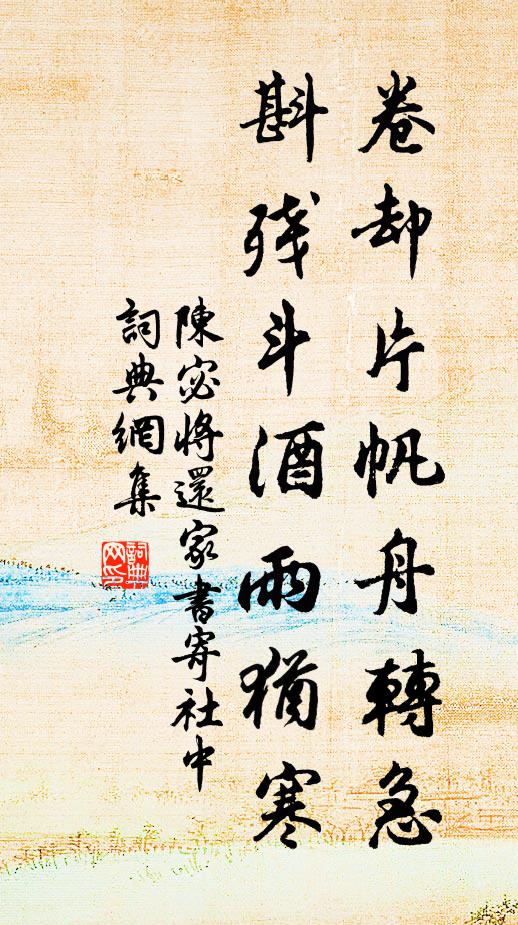 卷却片帆舟轉急
斟残斗酒雨猶寒
陳宓將還家書寄社中
詞典網集
詞典网印